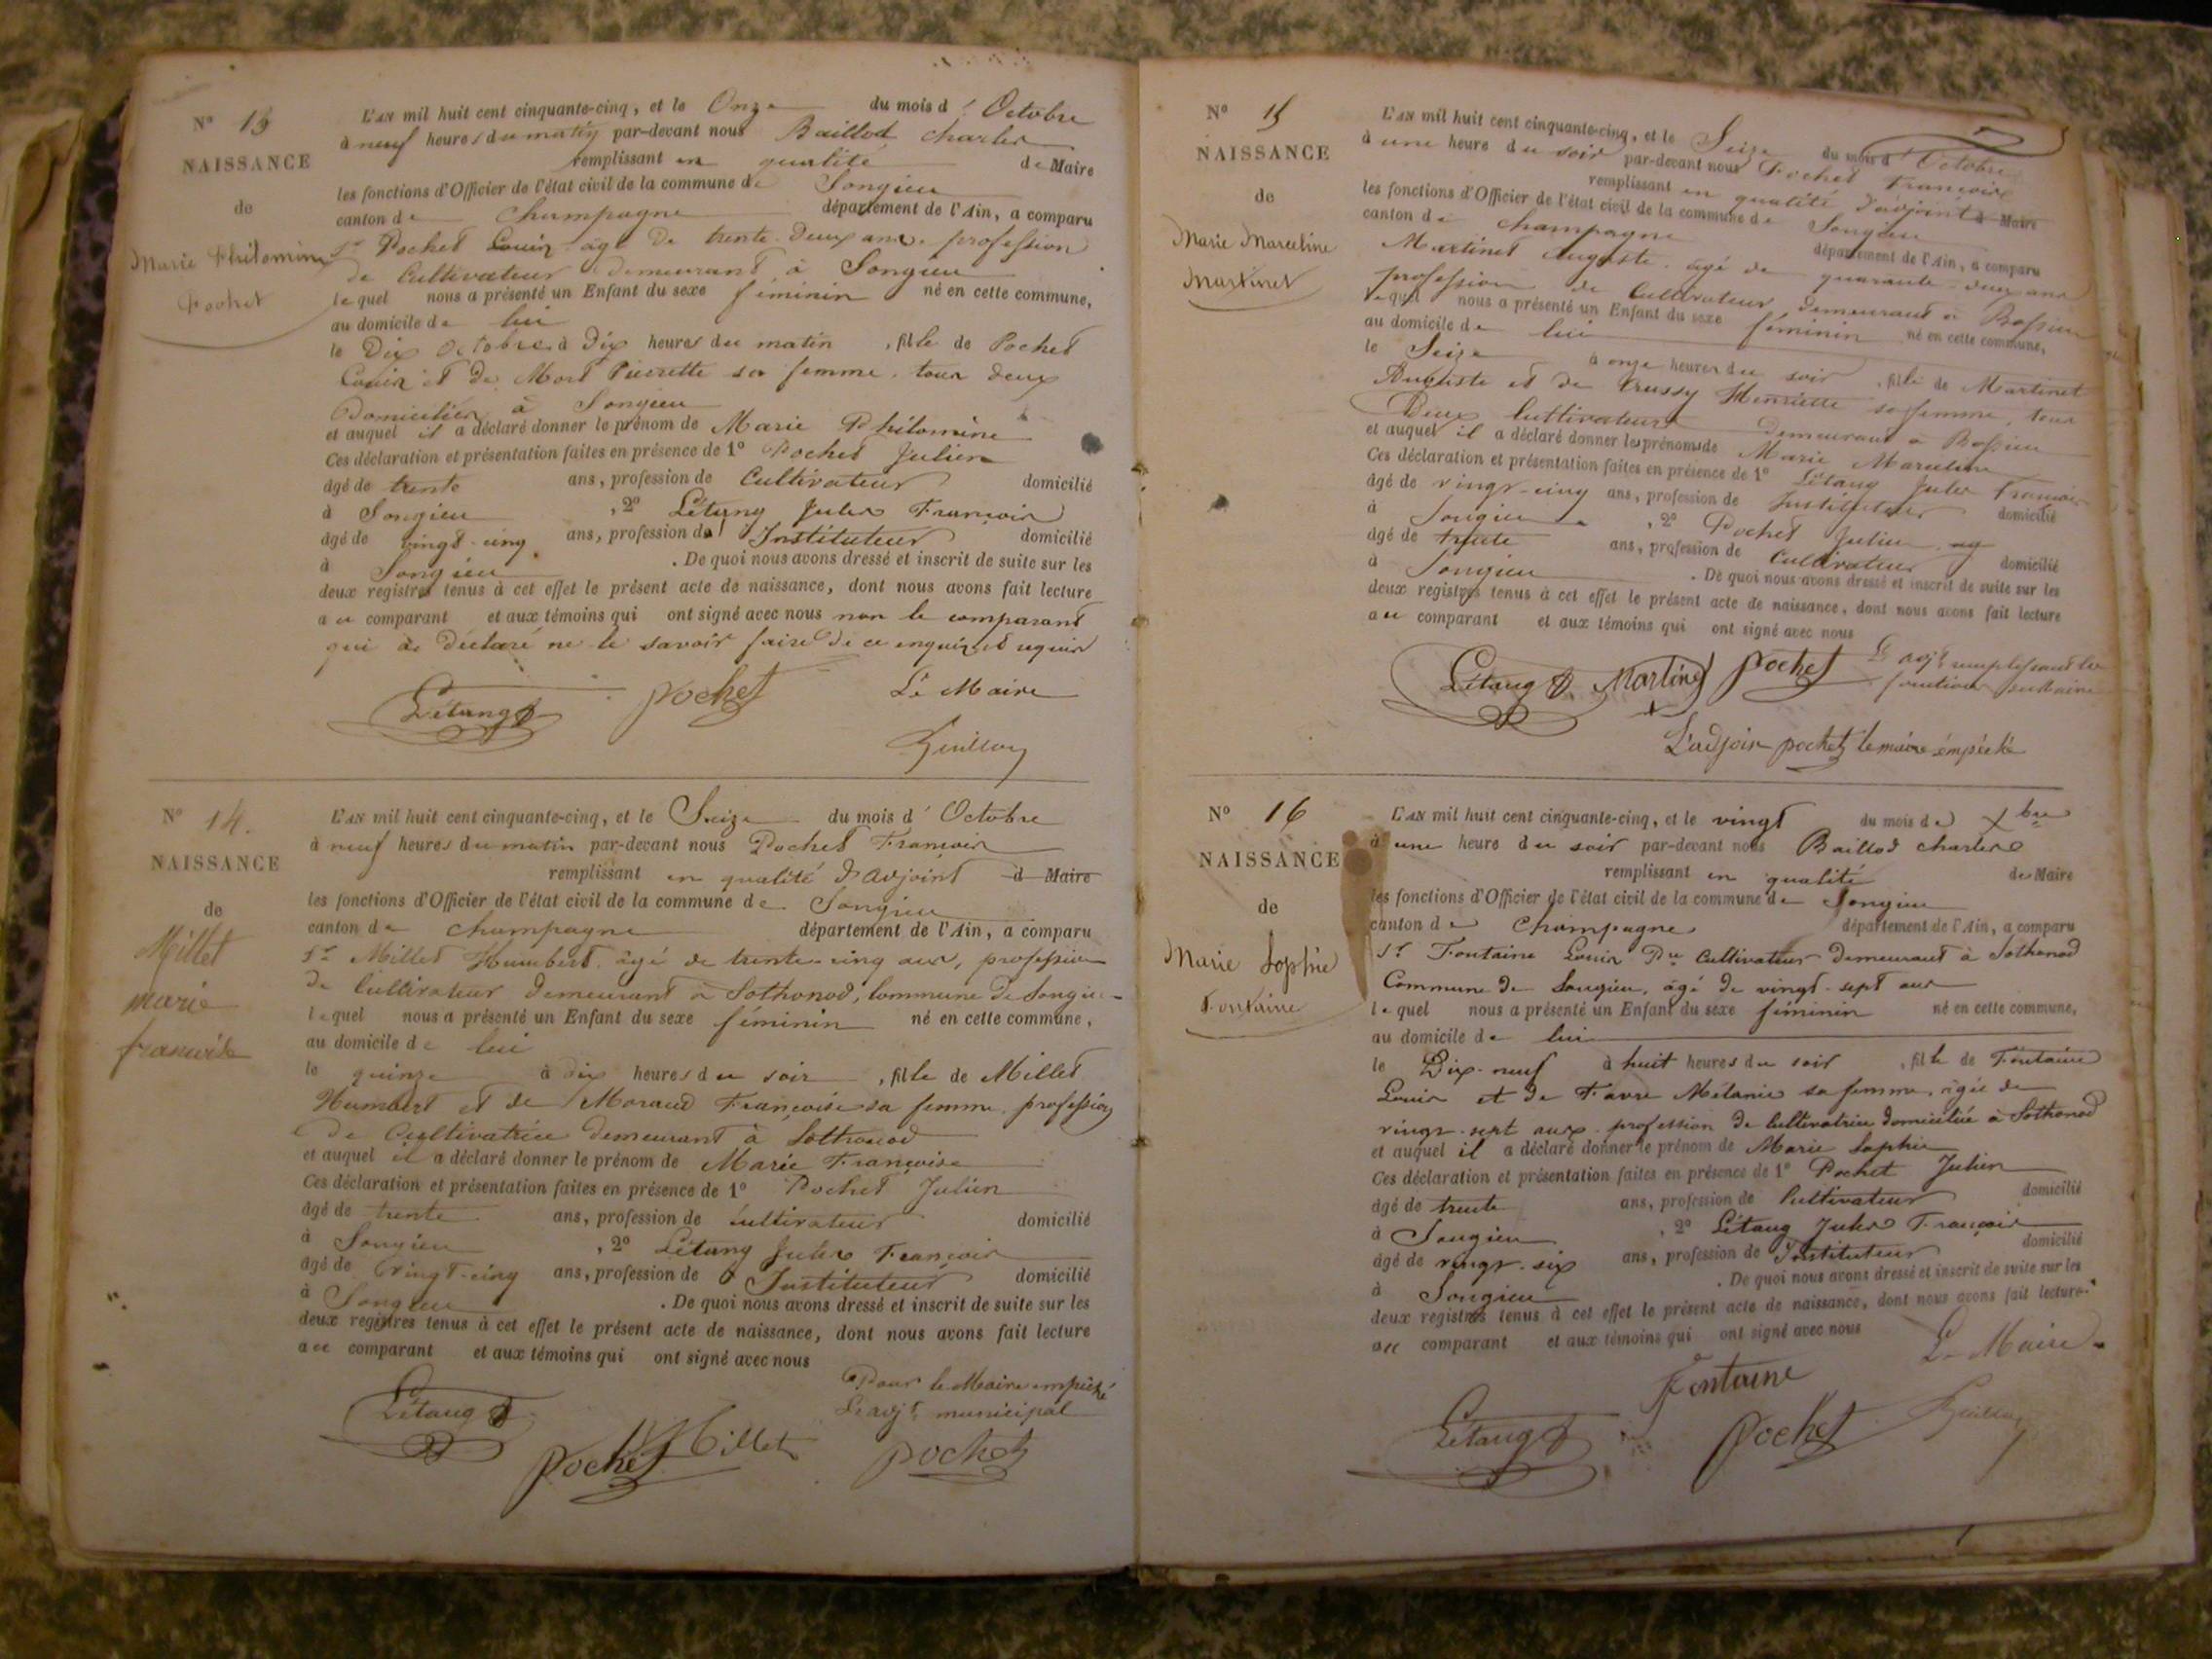 N° 13
NAISSANCE
de
Marie Philomine
Pochet
L'AN mil huit cent cinquante-cinq, et le Onze du mois d' Octobre
à neuf heures du matin par-devant nous Baillod Charles
remplissant en qualité de Maire
les fonctions d'Officier de l'état civil de la commune de Songieu
canton de Champagne département de l'Ain, a comparu
Sr Pochet Louis âgé de trente-deux ans profession
de Cultivateur demeurant à Songieu
lequel nous a présenté un Enfant du sexe féminin né en cette commune,
au domicile de lui
le Dix Octobre à Dix heures du matin , fille de Pochet
Louis et de Mort Pierrette sa femme, tous deux
Domiciliés à Songieu
et auquel il a déclaré donner le prénom de Marie Philomine
Ces déclaration et présentation faites en présence de 1° Pochet Julien
âgé de trente ans, profession de Cultivateur domicilié
à Songieu , 2° Létang Jules François
âgé de vingt-cinq ans, profession d' Instituteur domicilié
à Songieu . De quoi nous avons dressé et inscrit de suite sur les
deux registres tenus à cet effet le présent acte de naissance, dont nous avons fait lecture
au comparant et aux témoins qui ont signé avec nous non le comparant
qui a déclaré ne le savoir faire de ce enquis et requis
Létang J. Pochet Le Maire
N° 14.
NAISSANCE
de
Millet
marie
francoise
L'AN mil huit cent cinquante-cinq, et le Seize du mois d' Octobre
à neuf heures du matin par-devant nous Pochet François
remplissant en qualité d'adjoint d Maire
les fonctions d'Officier de l'état civil de la commune de Songieu
canton de Champagne département de l'Ain, a comparu
Sr Millet Humbert âgé de trente-cinq ans, profession
de Cultivateur demeurant à Sothonod, Commune de Songieu
lequel nous a présenté un Enfant du sexe féminin né en cette commune,
au domicile de lui
le quinze à dix heures du soir , fille de Millet
Humbert et de Moraud Françoise sa femme, profession
de Cultivatrice demeurant à Sothonod
et auquel il a déclaré donner le prénom de Marie Françoise
Ces déclaration et présentation faites en présence de 1° Pochet Julien
âgé de trente ans, profession de Cultivateur domicilié
à Songieu , 2° Létang Jules François
âgé de vingt-cinq ans, profession d' Instituteur domicilié
à Songieu . De quoi nous avons dressé et inscrit de suite sur les
deux registres tenus à cet effet le présent acte de naissance, dont nous avons fait lecture
au comparant et aux témoins qui ont signé avec nous
Pour le Maire empêché
Le adjt municipal
Létang J. Pochet Millet Pochet
N° 15
NAISSANCE
de
Marie Marceline
Martinet
L'AN mil huit cent cinquante-cinq, et le Seize du mois d' Octobre
à une heure du soir par-devant nous Pochet François
remplissant en qualité d'adjoint d Maire
les fonctions d'Officier de l'état civil de la commune de Songieu
canton de Champagne département de l'Ain, a comparu
Martinet Auguste âgé de quarante-deux ans
profession de Cultivateur demeurant à Bossieu
lequel nous a présenté un Enfant du sexe féminin né en cette commune,
au domicile de lui
le Seize à onze heures du soir , fille de Martinet
Auguste et de Brussy Henriette sa femme, tous
Deux Cultivateurs demeurant à Bossieu
et auquel il a déclaré donner les prénoms de Marie Marceline
Ces déclaration et présentation faites en présence de 1° Létang Jules François
âgé de vingt-cinq ans, profession de Instituteur domicilié
à Songieu , 2° Pochet Julien
âgé de trente ans, profession de Cultivateur domicilié
à Songieu . De quoi nous avons dressé et inscrit de suite sur les
deux registres tenus à cet effet le présent acte de naissance, dont nous avons fait lecture
au comparant et aux témoins qui ont signé avec nous
L' adjt remplissant les
fonctions de Maire
Létang J. Martinet Pochet
L'adjoin pochet le maire émpéché
N° 16
NAISSANCE
de
Marie Sophie
Fontaine
L'AN mil huit cent cinquante-cinq, et le vingt du mois de Xbre
à une heure du soir par-devant nous Baillod Charles
remplissant en qualité de Maire
les fonctions d'Officier de l'état civil de la commune de Songieu
canton de Champagne département de l'Ain, a comparu
Sr Fontaine Louis Cultivateur demeurant à Sothonod
Commune de Songieu, âgé de vingt-sept ans
lequel nous a présenté un Enfant du sexe féminin né en cette commune,
au domicile de lui
le Dix-neuf à huit heures du soir , fille de Fontaine
Louis et de Favre Mélanie sa femme, âgée de
vingt-sept ans profession de Cultivatrice domiciliée à Sothonod
et auquel il a déclaré donner le prénom de Marie Sophie
Ces déclaration et présentation faites en présence de 1° Pochet Julien
âgé de trente ans, profession de Cultivateur domicilié
à Songieu , 2° Létang Jules François
âgé de vingt-six ans, profession de Instituteur domicilié
à Songieu . De quoi nous avons dressé et inscrit de suite sur les
deux registres tenus à cet effet le présent acte de naissance, dont nous avons fait lecture
au comparant et aux témoins qui ont signé avec nous
Le Maire
Fontaine
Létang J. Pochet